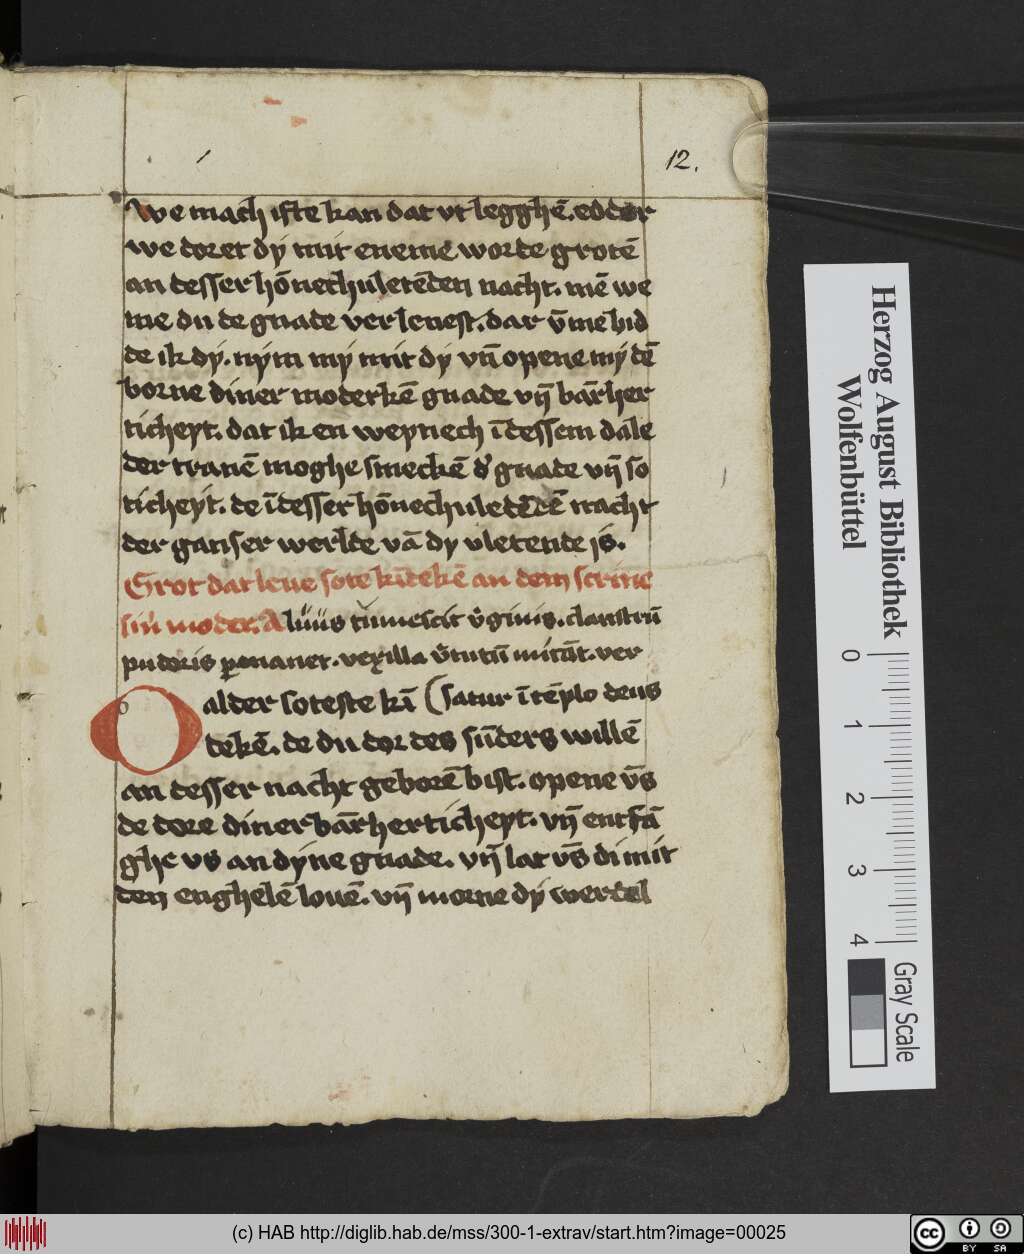 12.
we mach ifte kan dat vt legghē. edder
we doret dÿ mit eneme worde grotē
an desser hōnechuletēden nacht. mē we
me du de gnade verlenest. dar v̄me bid
de ik dÿ. nÿm mÿ mit dÿ vn̄ opene mÿ dē
borne diner moderkē gnade vn̄ bārher
ticheyt. dat ik en weynech ī dessem dale
der tranē moghe smeckē d' gnade vn̄ so
ticheyt. de ī desser hōnechuletēdē nacht
der ganser werlde vā dy vletende is.
Grot dat leue sote kīdekē an dem scrine
sin' moder. Aluus tumescit v'ginis. claustrū
pudoris permanet. vexilla v'tutū micāt. ver
O alder soteste kī (satur ī tēplo deus
dekē. de du dor des sūders willē
an desser nacht geborē bist. opene v̄s
de dore diner bārherticheyt. vn̄ entfā
ghe vs an dÿne gnade. vn̄ lat v̄s di mit
den enghelē louē. vn̄ morne dÿ werdel
Herzog August Bibliothek
Wolfenbüttel
0 1 2 3 4
Gray Scale
(c) HAB http://diglib.hab.de/mss/300-1-extrav/start.htm?image=00025
cc BY SA